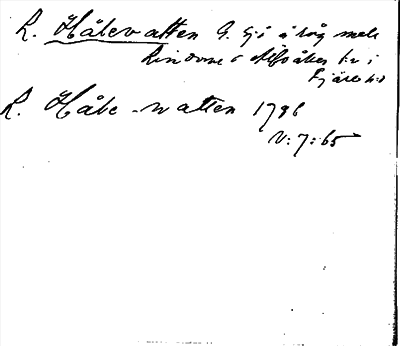 L. Hålevatten G. sjö i råg mele
Lindome o Älvsåker sn i
Fjäre hd
L. Håle-watten 1796
V:7:65